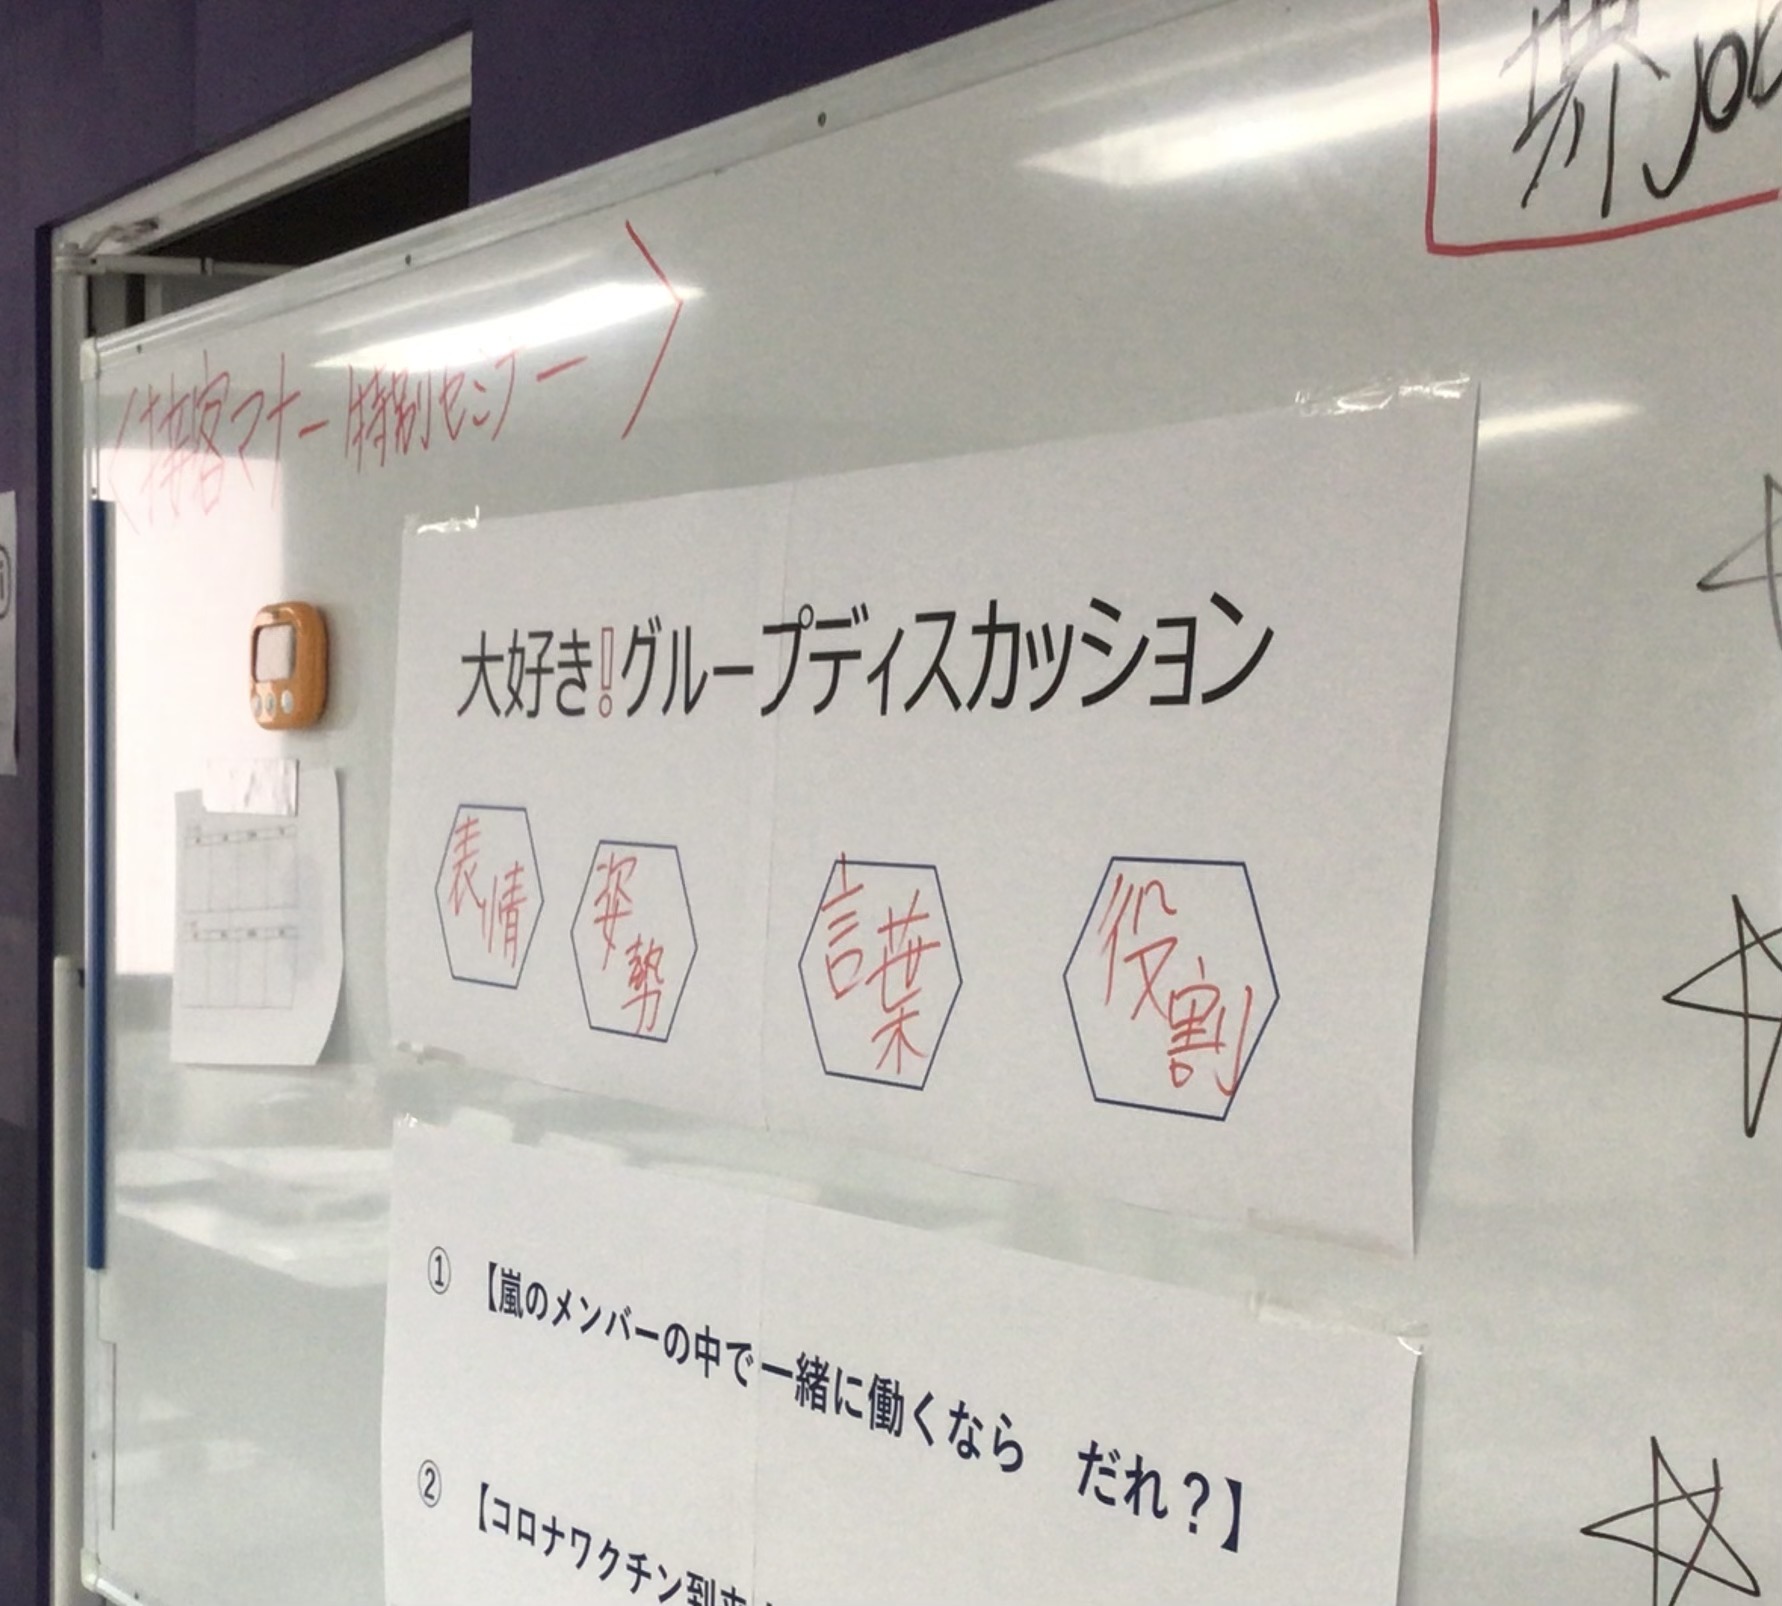 堺Job
〈接客マナー特別セミナー〉
大好き!グループディスカッション
表情 姿勢 言葉 役割
① 【嵐のメンバーの中で一緒に働くなら だれ？】
② 【コロナワクチン到来